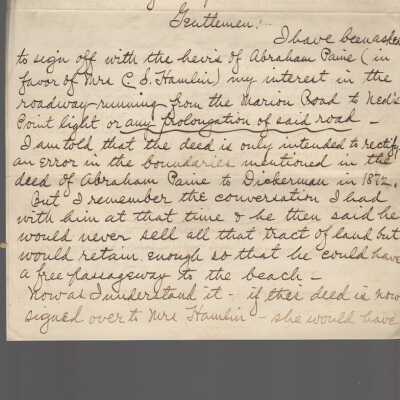 Gentlemen:-
I have been asked
to sign off with the heirs of Abraham Paine (in
favor of Mrs C. S. Hamlin) my interest in the
roadway running from the Marion Road to Ned's
Point light or any prolongation of said road -
I am told that the deed is only intended to rectify
an error in the boundaries mentioned in the
deed of Abraham Paine to Dickerman in 1872.
But I remember the conversation I had
with him at that time & he then said he
would never sell all that tract of land but
would retain enough so that he could have
a free passageway to the beach -
Now as I understand it - if this deed is now
signed over to Mrs Hamlin - she would have